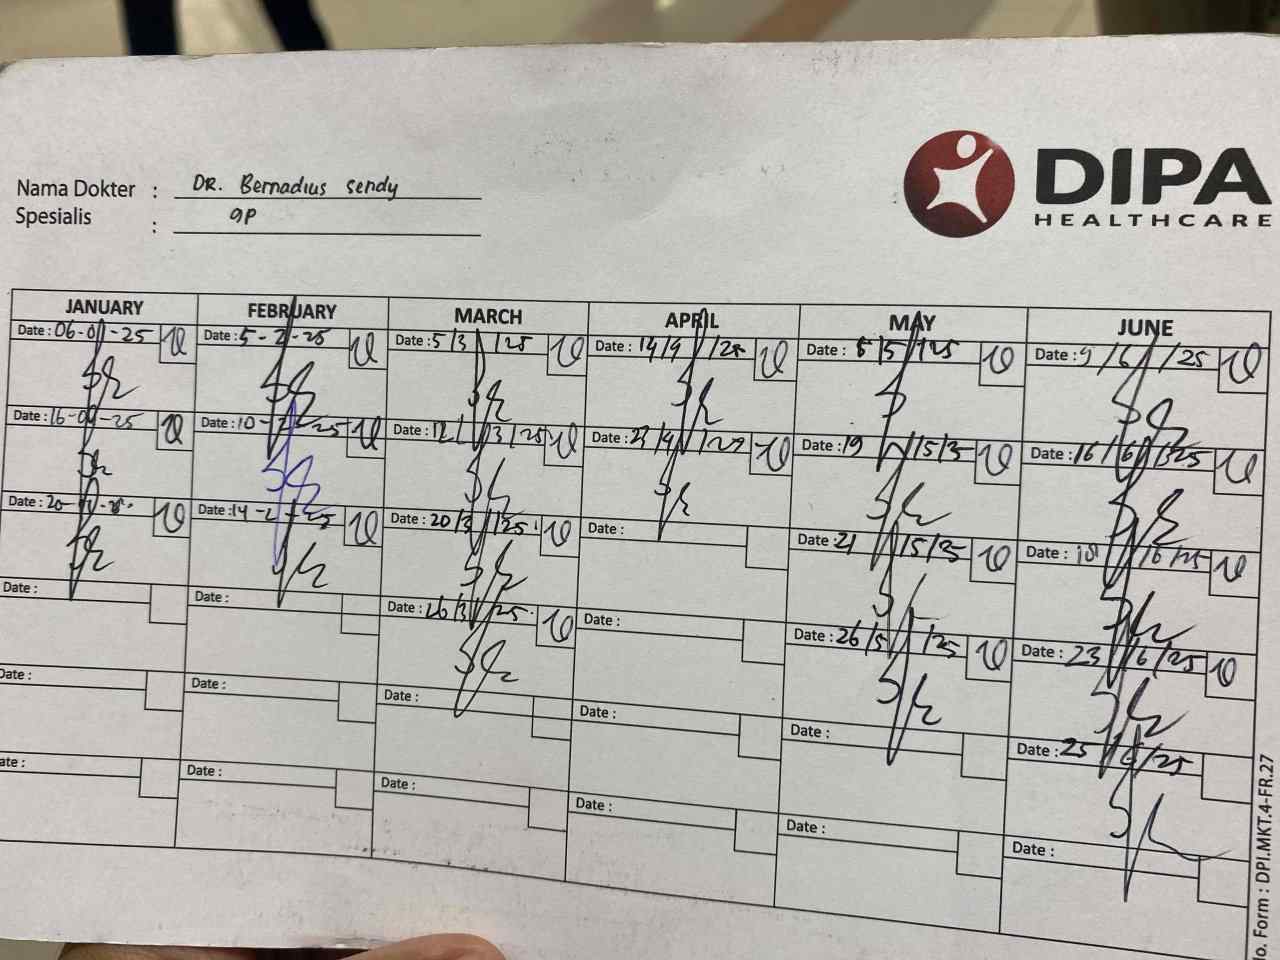 DIPA
HEALTHCARE
Nama Dokter : DR. Bernadius Sendy
Spesialis : GP
JANUARY FEBRUARY MARCH APRIL MAY JUNE
Date : 06-01-25 Date : 5-2-25 Date : 5/3/25 Date : 14/4/25 Date : 5/5/25 Date : 9/6/25
Date : 16-01-25 Date : 10-2-25 Date : 12/3/25 Date : 23/4/25 Date : 19/5/25 Date : 16/6/25
Date : 20-01-25 Date : 14-2-25 Date : 20/3/25 Date : Date : 21/5/25 Date : /6/25
Date : Date : Date : 26/3/25 Date : Date : 26/5/25 Date : 23/6/25
Date : Date : Date : Date : Date : Date : 25/6/25
ate : Date : Date : Date : Date : Date :
No. Form : DPI.MKT.4-FR.27